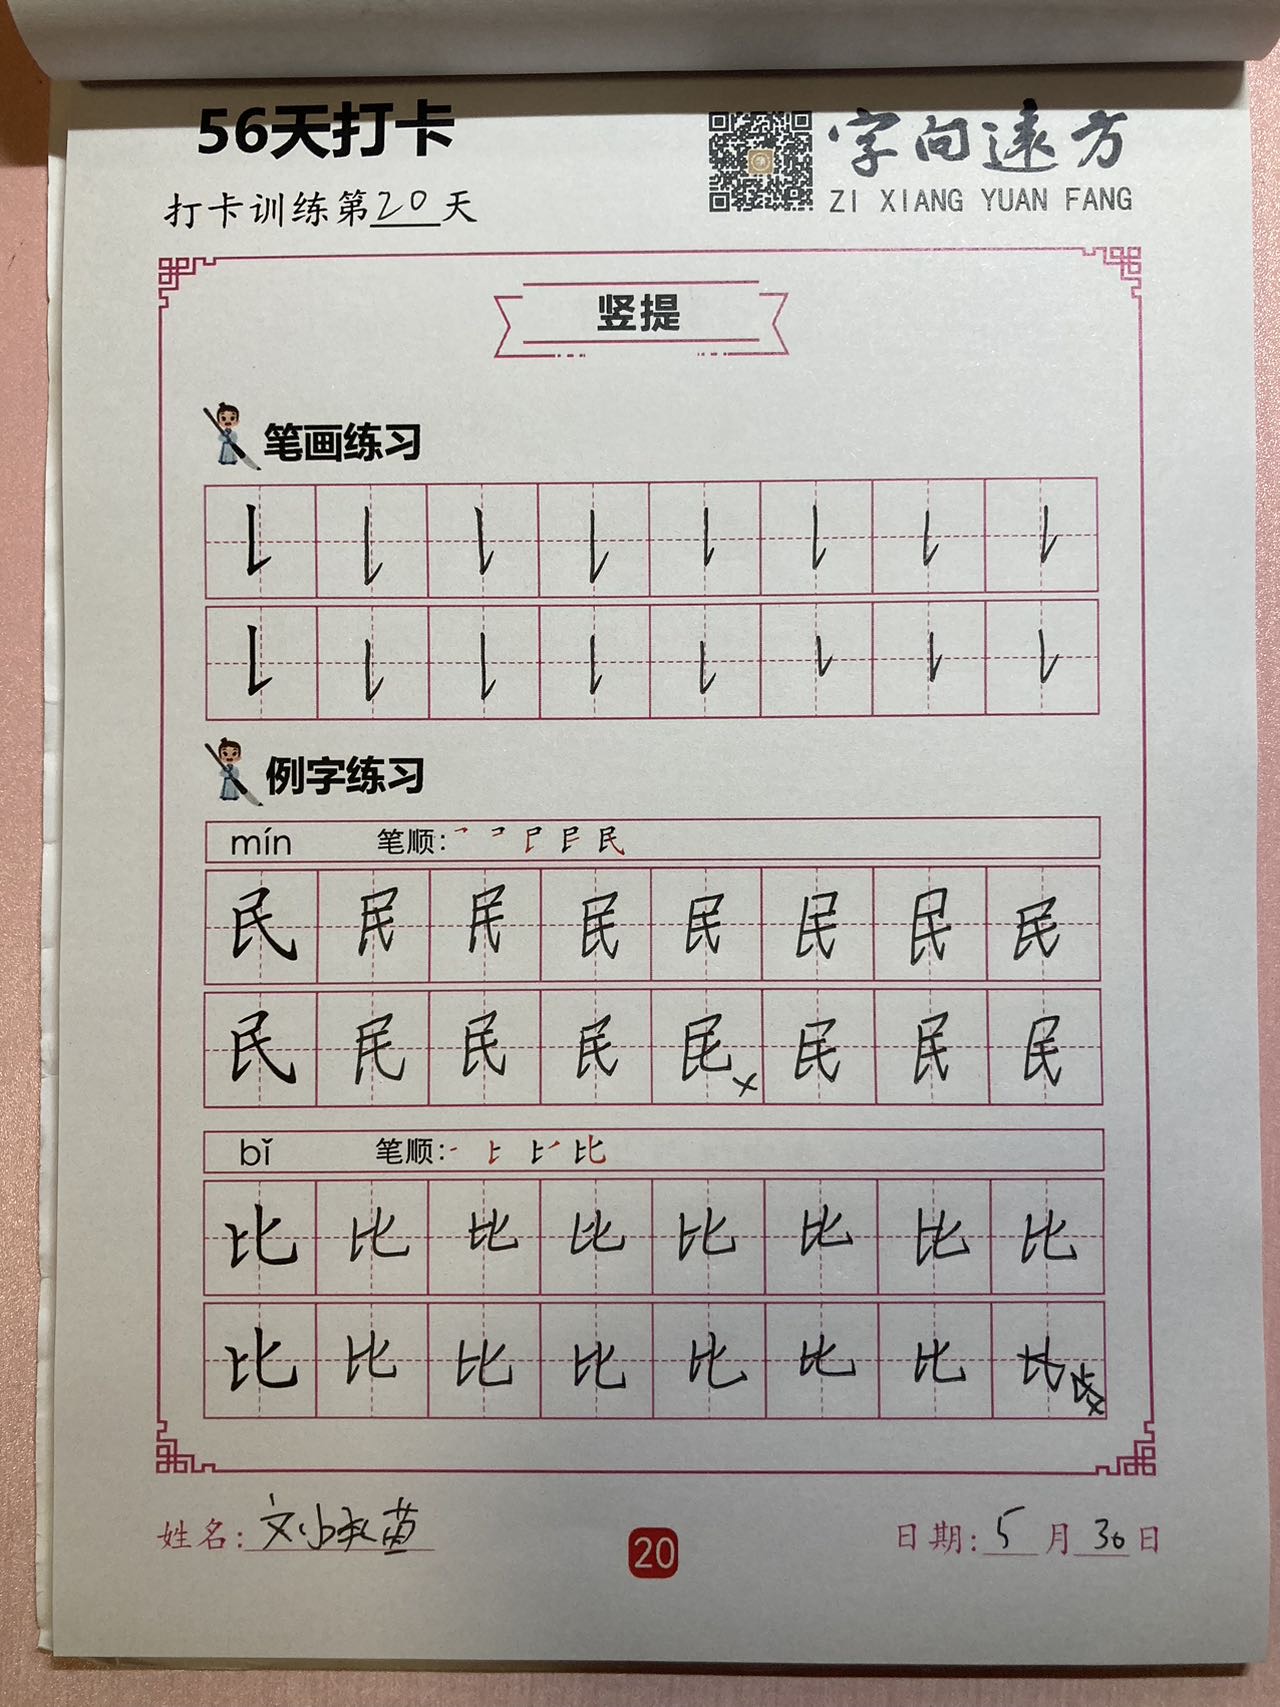 56天打卡
字向遠方
打卡训练第20天
ZI XIANG YUAN FANG
竖提
笔画练习
例字练习
mín 笔顺:
民 民 民 民 民 民 民 民
民 民 民 民 民 民 民 民
bǐ 笔顺:
比 比 比 比 比 比 比 比
比 比 比 比 比 比 比 比
姓名:
20
日期: 5 月 30 日